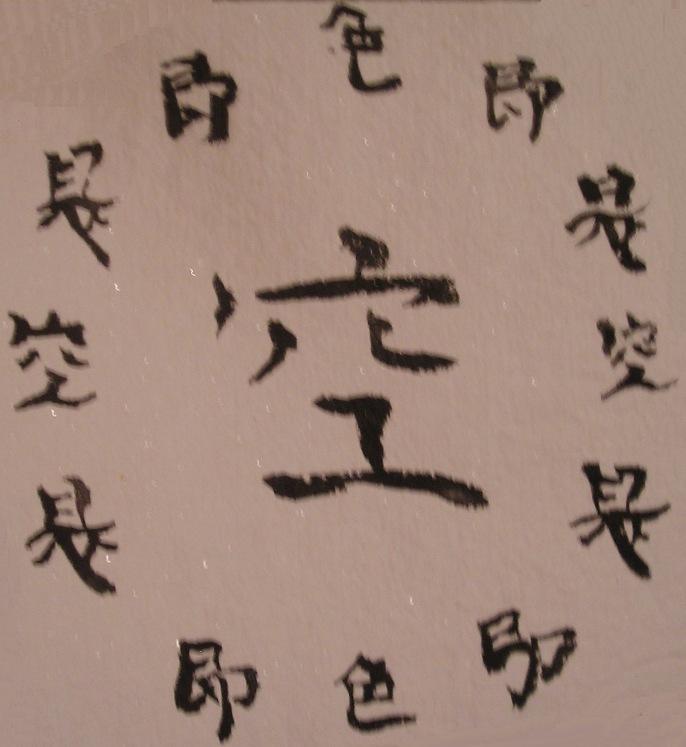 色即是空是即色即是空是即
空